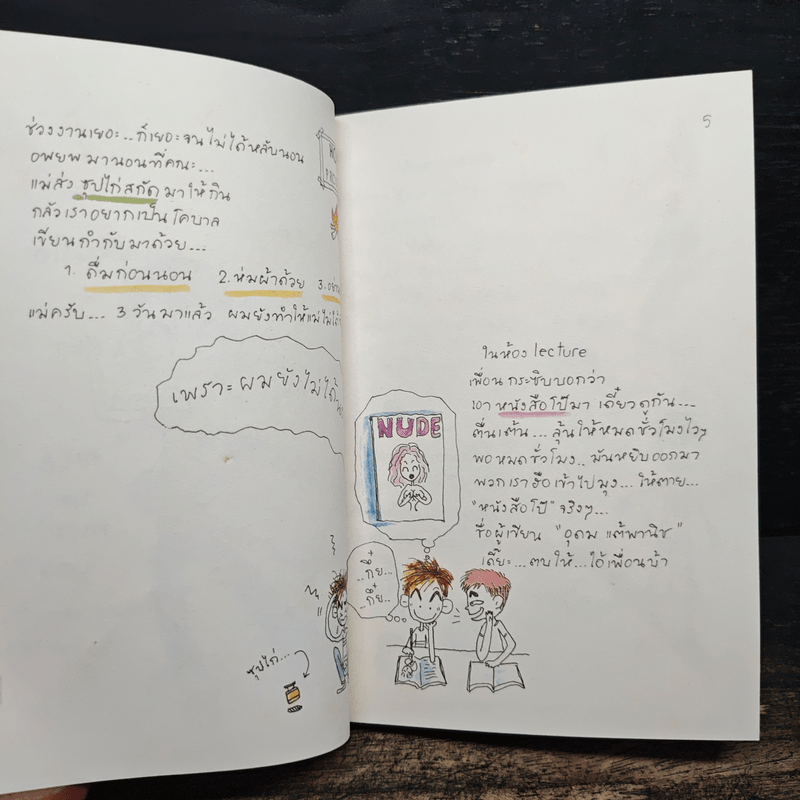 ช่วงงานเยอะ.. ก็เยอะจนไม่ได้หลับนอน
อพยพมานอนที่คณะ...
แม่ส่ง ซุปไก่สกัด มาให้กิน
กลัวเราอยากเป็นโคบาล
เขียนกำกับมาด้วย...
1. ดื่มก่อนนอน 2. ห่มผ้าด้วย 3.
แม่ครับ... 3 วันมาแล้ว ผมยังทำให้แม่ไม่ได้
เพราะผมยังไม่ได้
ซุปไก่...
5
ในห้อง lecture
เพื่อนกระซิบบอกว่า
เอาหนังสือโป๊มา เดี๋ยวดูกัน...
ตื่นเต้น... ลุ้นให้หมดชั่วโมงไวๆ
พอหมดชั่วโมง.. มันหยิบออกมา
พวกเราฮือเข้าไปมุง... ให้ตาย...
"หนังสือโป๊" จริงๆ...
ชื่อผู้เขียน "อุดม แต้พานิช"
เดี๊ยะ... ตบให้... ไอ้เพื่อนบ้า
NUDE
..กึ๋ย..
..กึ๋ย..